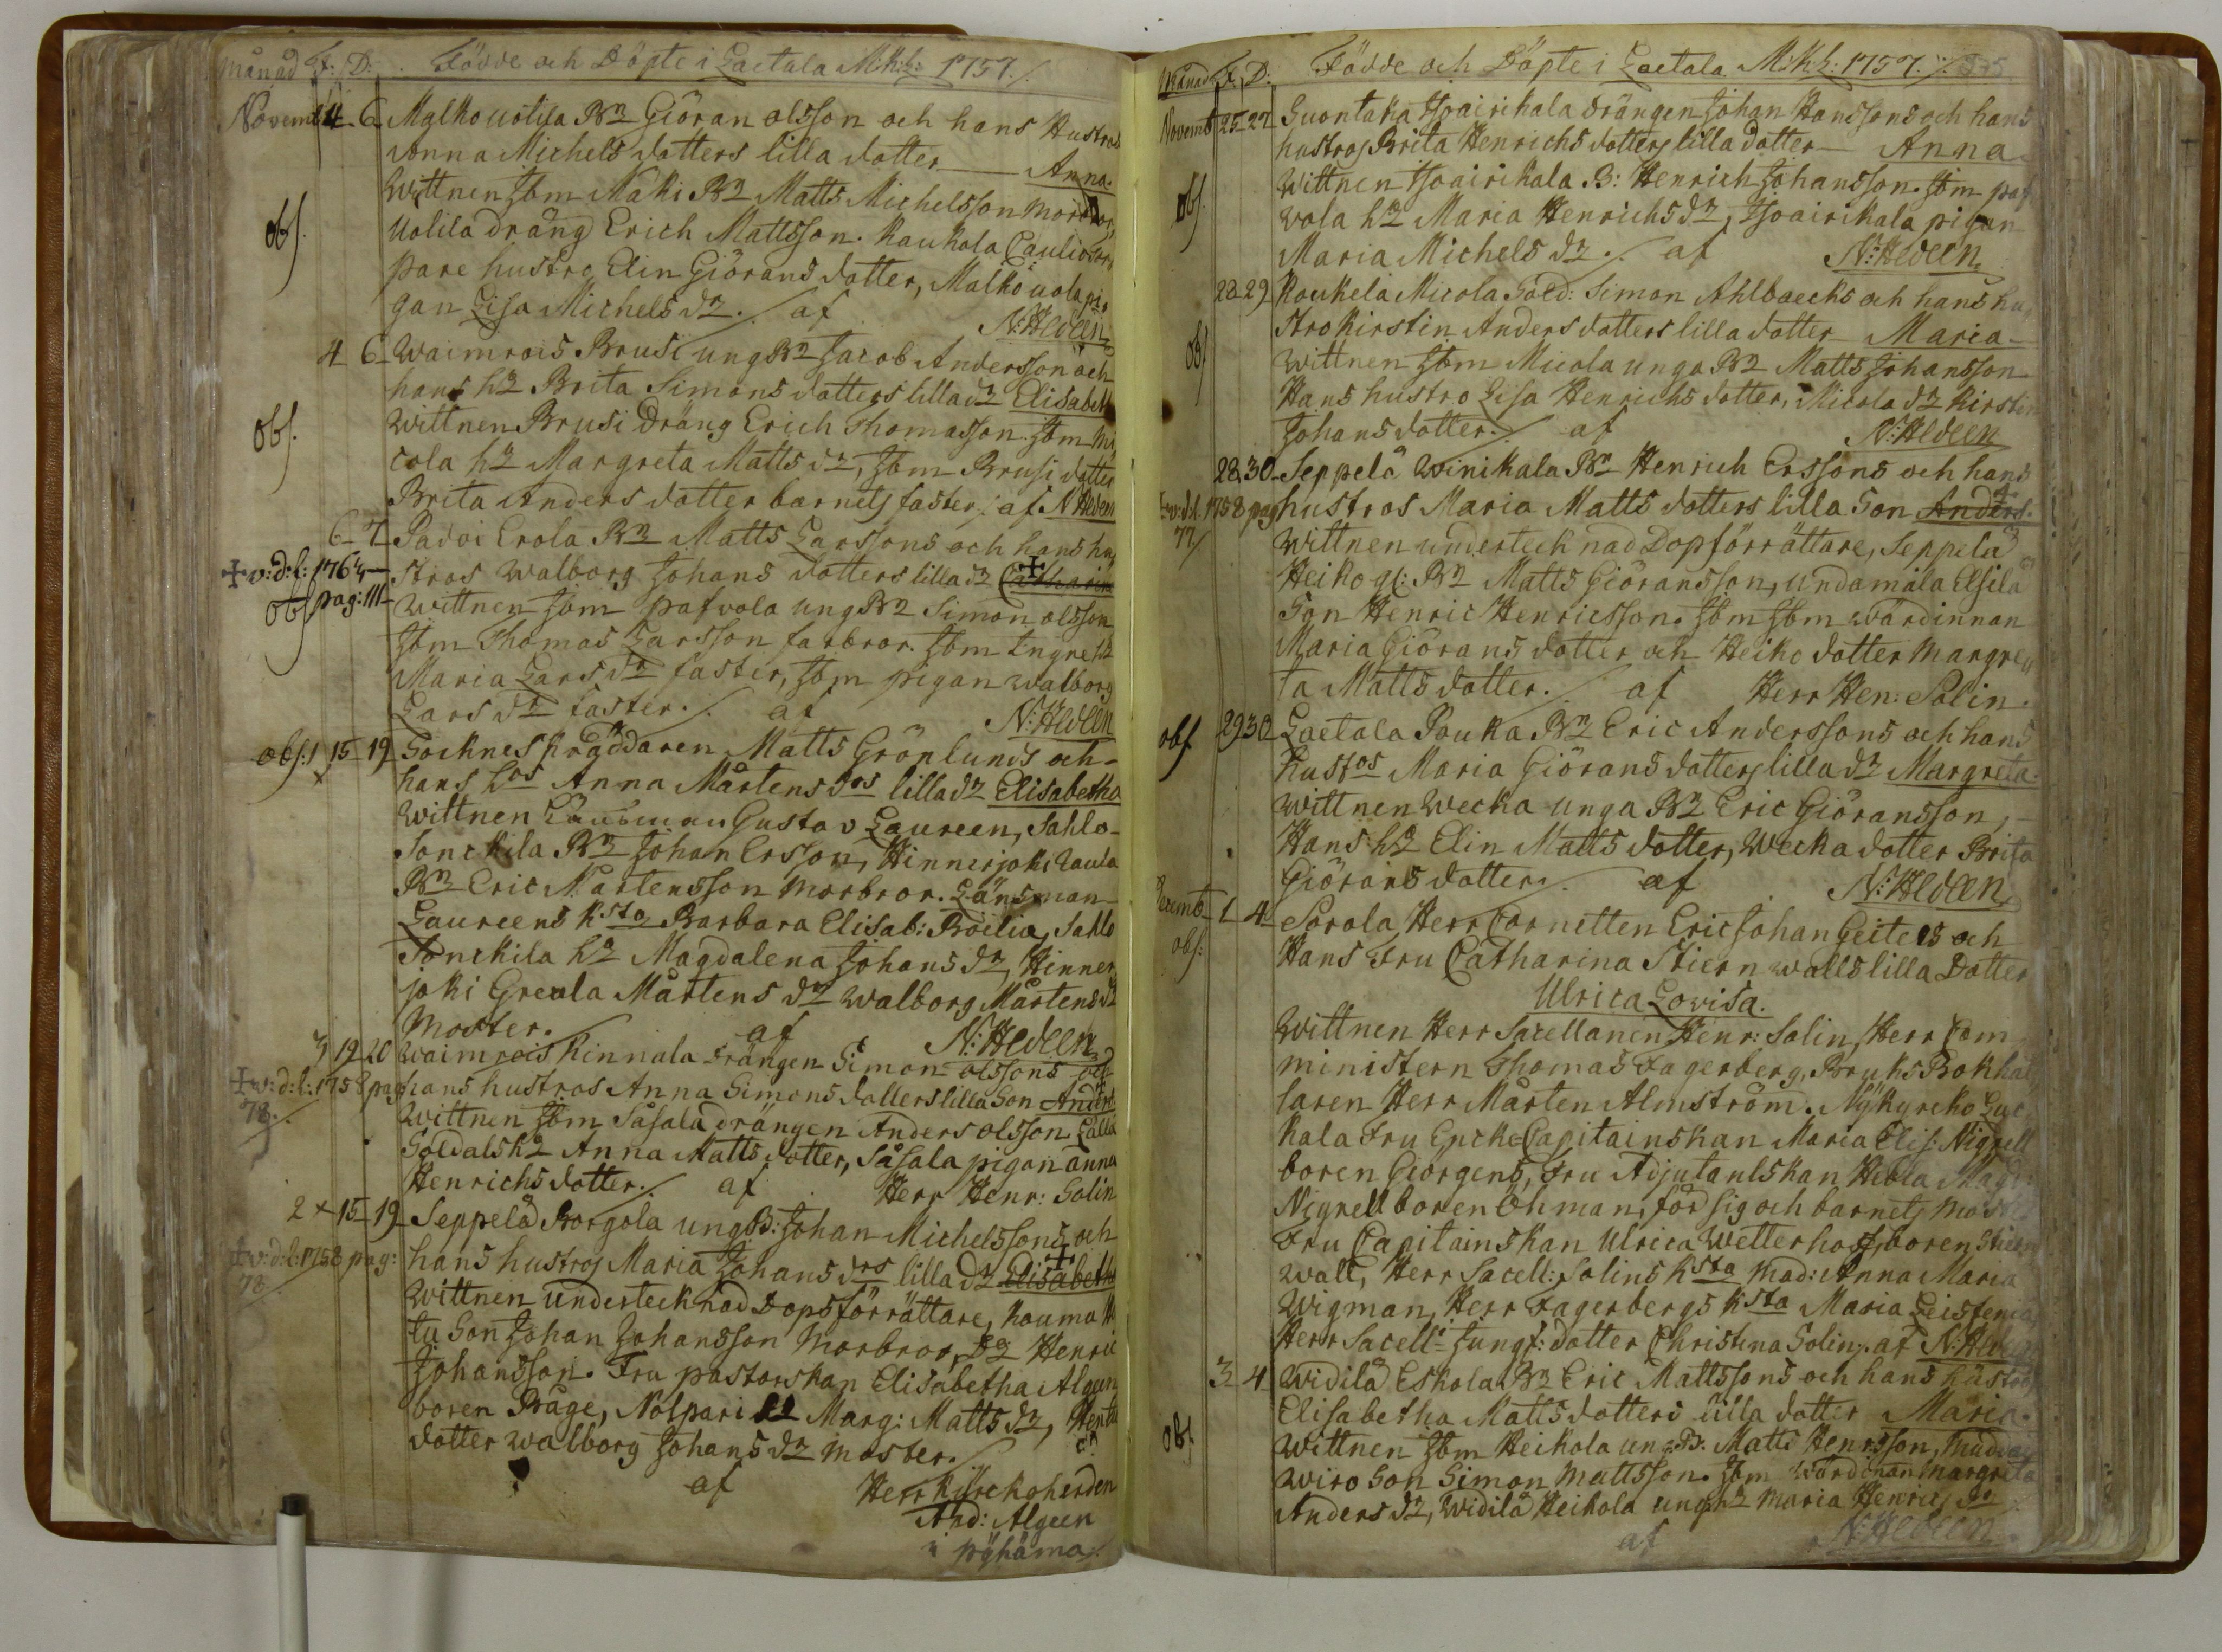 Månad F: D: Födde och Döpte i Laetala M:k:l: 1757./.
Novemb 4 6 Malko uotila Bn Giöran olsson och hans Hustros
Anna Michels dotters lilla dotter Anna.
Wittnen sbm Maki Bn Matts Michelsson morbror,
obs. uolila dräng Erich Mattsson. Kaukola
pare hustro Elin Giörans dotter, Malko uola pi
gan Lisa Michels dr./. af N: Hedeen
4 6 Waimrois Brusi ung Bn Jacob Andersson och
hans ha Brita Simons dotters lilla dr Elisabeth
obs. Wittnen Brusi Dräng Erich Thomasson. sbm Mi
cola ha Margreta Matts dr, sbm Brusi dotter
Brita Anders dotter barnets faster./. af N Hedeen
6 7 Padoi Erola Bn Matts Larssons och hans hu
+ v: d: l: 1764 stros Walborg Johans dotters lilla dr Catharina
obs pag: 111 Wittnen sbm pafvola ung Bn Simon olsson
sbm Thomas Larsson farbror. sbm
Maria Lars dr faster, sbm pigan Walborg
Lars dr faster./. af N: Hedeen
obs: 15 19 Sockneskräddaren Matts Grönlunds och
hans hos Anna Mårtens dos lilla dr Elisabetha
Wittnen Länsman Gustav Laureen, Sahlo
Sonckila Bn Johan Ersson, Hinnerjoki
Bn Eric Mårtensson Morbror. Länsman
Laureens Ksta Barbara Elisab: Boelia, Sahlo
Sonckila ha Magdalena Johans dr, Hinner
joki Greala Mårtens dr Walborg Mårtens dr
Moster./. af N: Hedeen
3 19 20 Waimrois Kinnala Drängen Simon olssons och
+ v: d: l: 1758 pag hans hustros Anna Simons dotters lilla Son Anders
78./. Wittnen sbm Såsala drängen Anders olsson
Soldatsk Anna Matts dotter, Såsala pigan Anna
Henrichs dotter./. af Herr Henr: Solin
2 + 15 19 Seppelä Borgola ung B: Johan Michelssons och
+ v: d: l: 1758 pag: hans hustros Maria Johans drs lilla dr Elisabetha
78./. Wittnen undertecknad Dopsförrättare, Kauma
tu Son Johan Johansson Morbror, Dr Henric
Johansson. Fru pastorskan Elisabetha Algeen
boren Båge, Nolpari Marg: Matts dr,
dotter Walborg Johans dr Moster./.
af Herr Kyrckoherden
And: Algeen
i pyhäma./.
Månad F: D: Födde och Döpte i Laetala M:k:l: 1757./.
Novemb 25 27 Suontaka drängen Johan Hanssons och hans
hustros Brita Henrichs dotters lilla dotter Anna
obs. Wittnen B: Henrich Johansson. sbm paf
vola ha Maria Henrichs dr, pigan
Maria Michels dr./. af N: Hedeen
28 29 Koukela Micola Sold: Simon Ahlbaecks och hans hu
stro Kirstin Anders dotters lilla dotter Maria
obs Wittnen sbm Micola unga Bn Matts Johansson
Hans hustro Lisa Henrichs dotter, Micola dr Kirstin
Johans dotter./. af N: Hedeen
28 30 Seppelä Winikala Bn Henrich Erssons och hans
v: d: l: 1758 pag hustros Maria Matts dotters lilla Son Anders.
77./. Wittnen undertecknad Dopförrättare, Seppelä
Heiko gl: Bn Matts Giöransson, undamala Elsilä
Son Henric Henricsson. sbm sbm Wärdinnan
Maria Giörans dotter och Heiko dotter Margre
ta Matts dotter./. af Herr Hen: Solin.
obs 29 30 Laetala Pouka Bn Eric Anderssons och hans
Hustos Maria Giörans dotters lilla dr Margreta
Wittnen Wecka unga Bn Eric Giöransson,
Hans ha Elin Matts dotter, Wecka dotter Brita
Giörans dotter./. af N: Hedeen
Decemb 1 4 Sorola Herr Cornetten Eric Johan Geitels och
obs: Hans Fru Catharina Stiernwalls lilla Dotter
Ulrica Lovisa.
Wittnen Herr Sacellanen Henr: Salin, Herr Com
ministern Thomas Fagerberg, Bruks Bokhål
laren Herr Mårten Almström. Nykyrcko
kala Fru Capitainskan Maria Elis: Nigrell
boren Giörgens, Fru Adjutantskan Hebla Magd:
Nigrell boren Öhman, för sig och barnets Mos
Fru Capitainskan Ulrica Wetterhof boren Stiern
wall, Herr Sacell: Solins Ksta Mad: Anna Maria
Wigman, Herr Fagerbergs Ksta Maria Leistenia
Herr Sacell: Jungf: dotter Christina Solin./. af N: Hedeen
3 4 Widilä Eskola Bn Eric Mattssons och hans hustros
Elisabetha Matts dotters lilla dotter Maria.
obs. Wittnen sbm Heikola ung B: Matts Henrsson,
wiro Son Simon Mattsson. sbm Wärdinan Margreta
Anders dr, Widilä Heikola ung ha Maria Henrics dr
af N: Hedeen